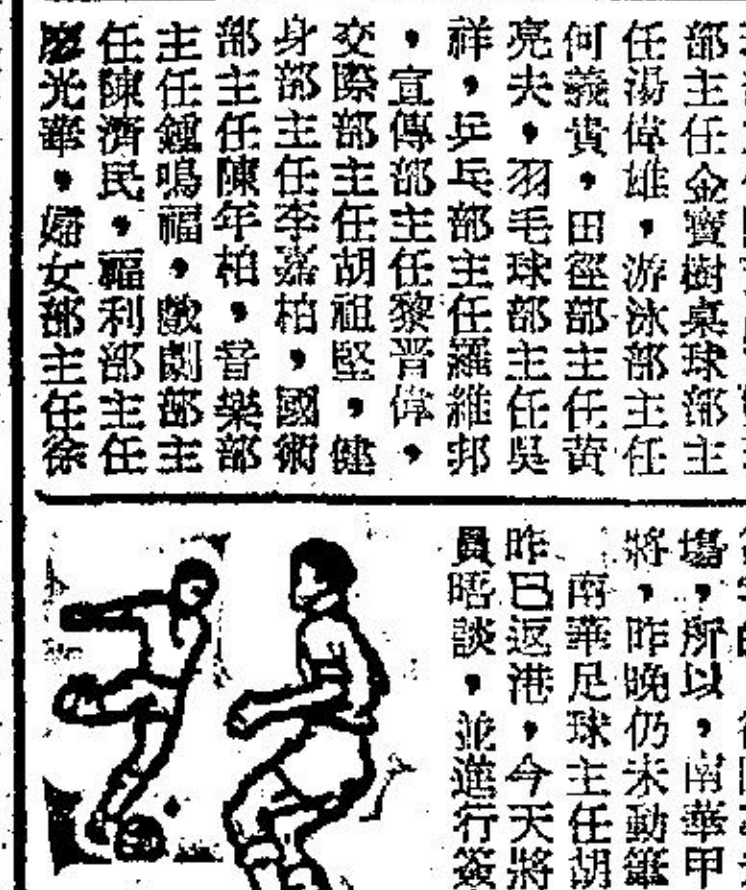 部主任金寶樹桌球部主
任湯偉雄，游泳部主任
何義貴，田徑部主任黃
亮夫，羽毛球部主任吳
祥，乒乓部主任羅維邦
，宣傳部主任黎晋偉，
交際部主任胡祖堅，健
身部主任李嘉柏，國術
部主任陳年柏，音樂部
主任鍾鳴福，戲劇部主
任陳濟民，福利部主任
廖光華，婦女部主任徐
塲，所以，南華甲
將，昨晚仍未動筆
南華足球主任胡
昨已返港，今天將
員晤談，並進行簽